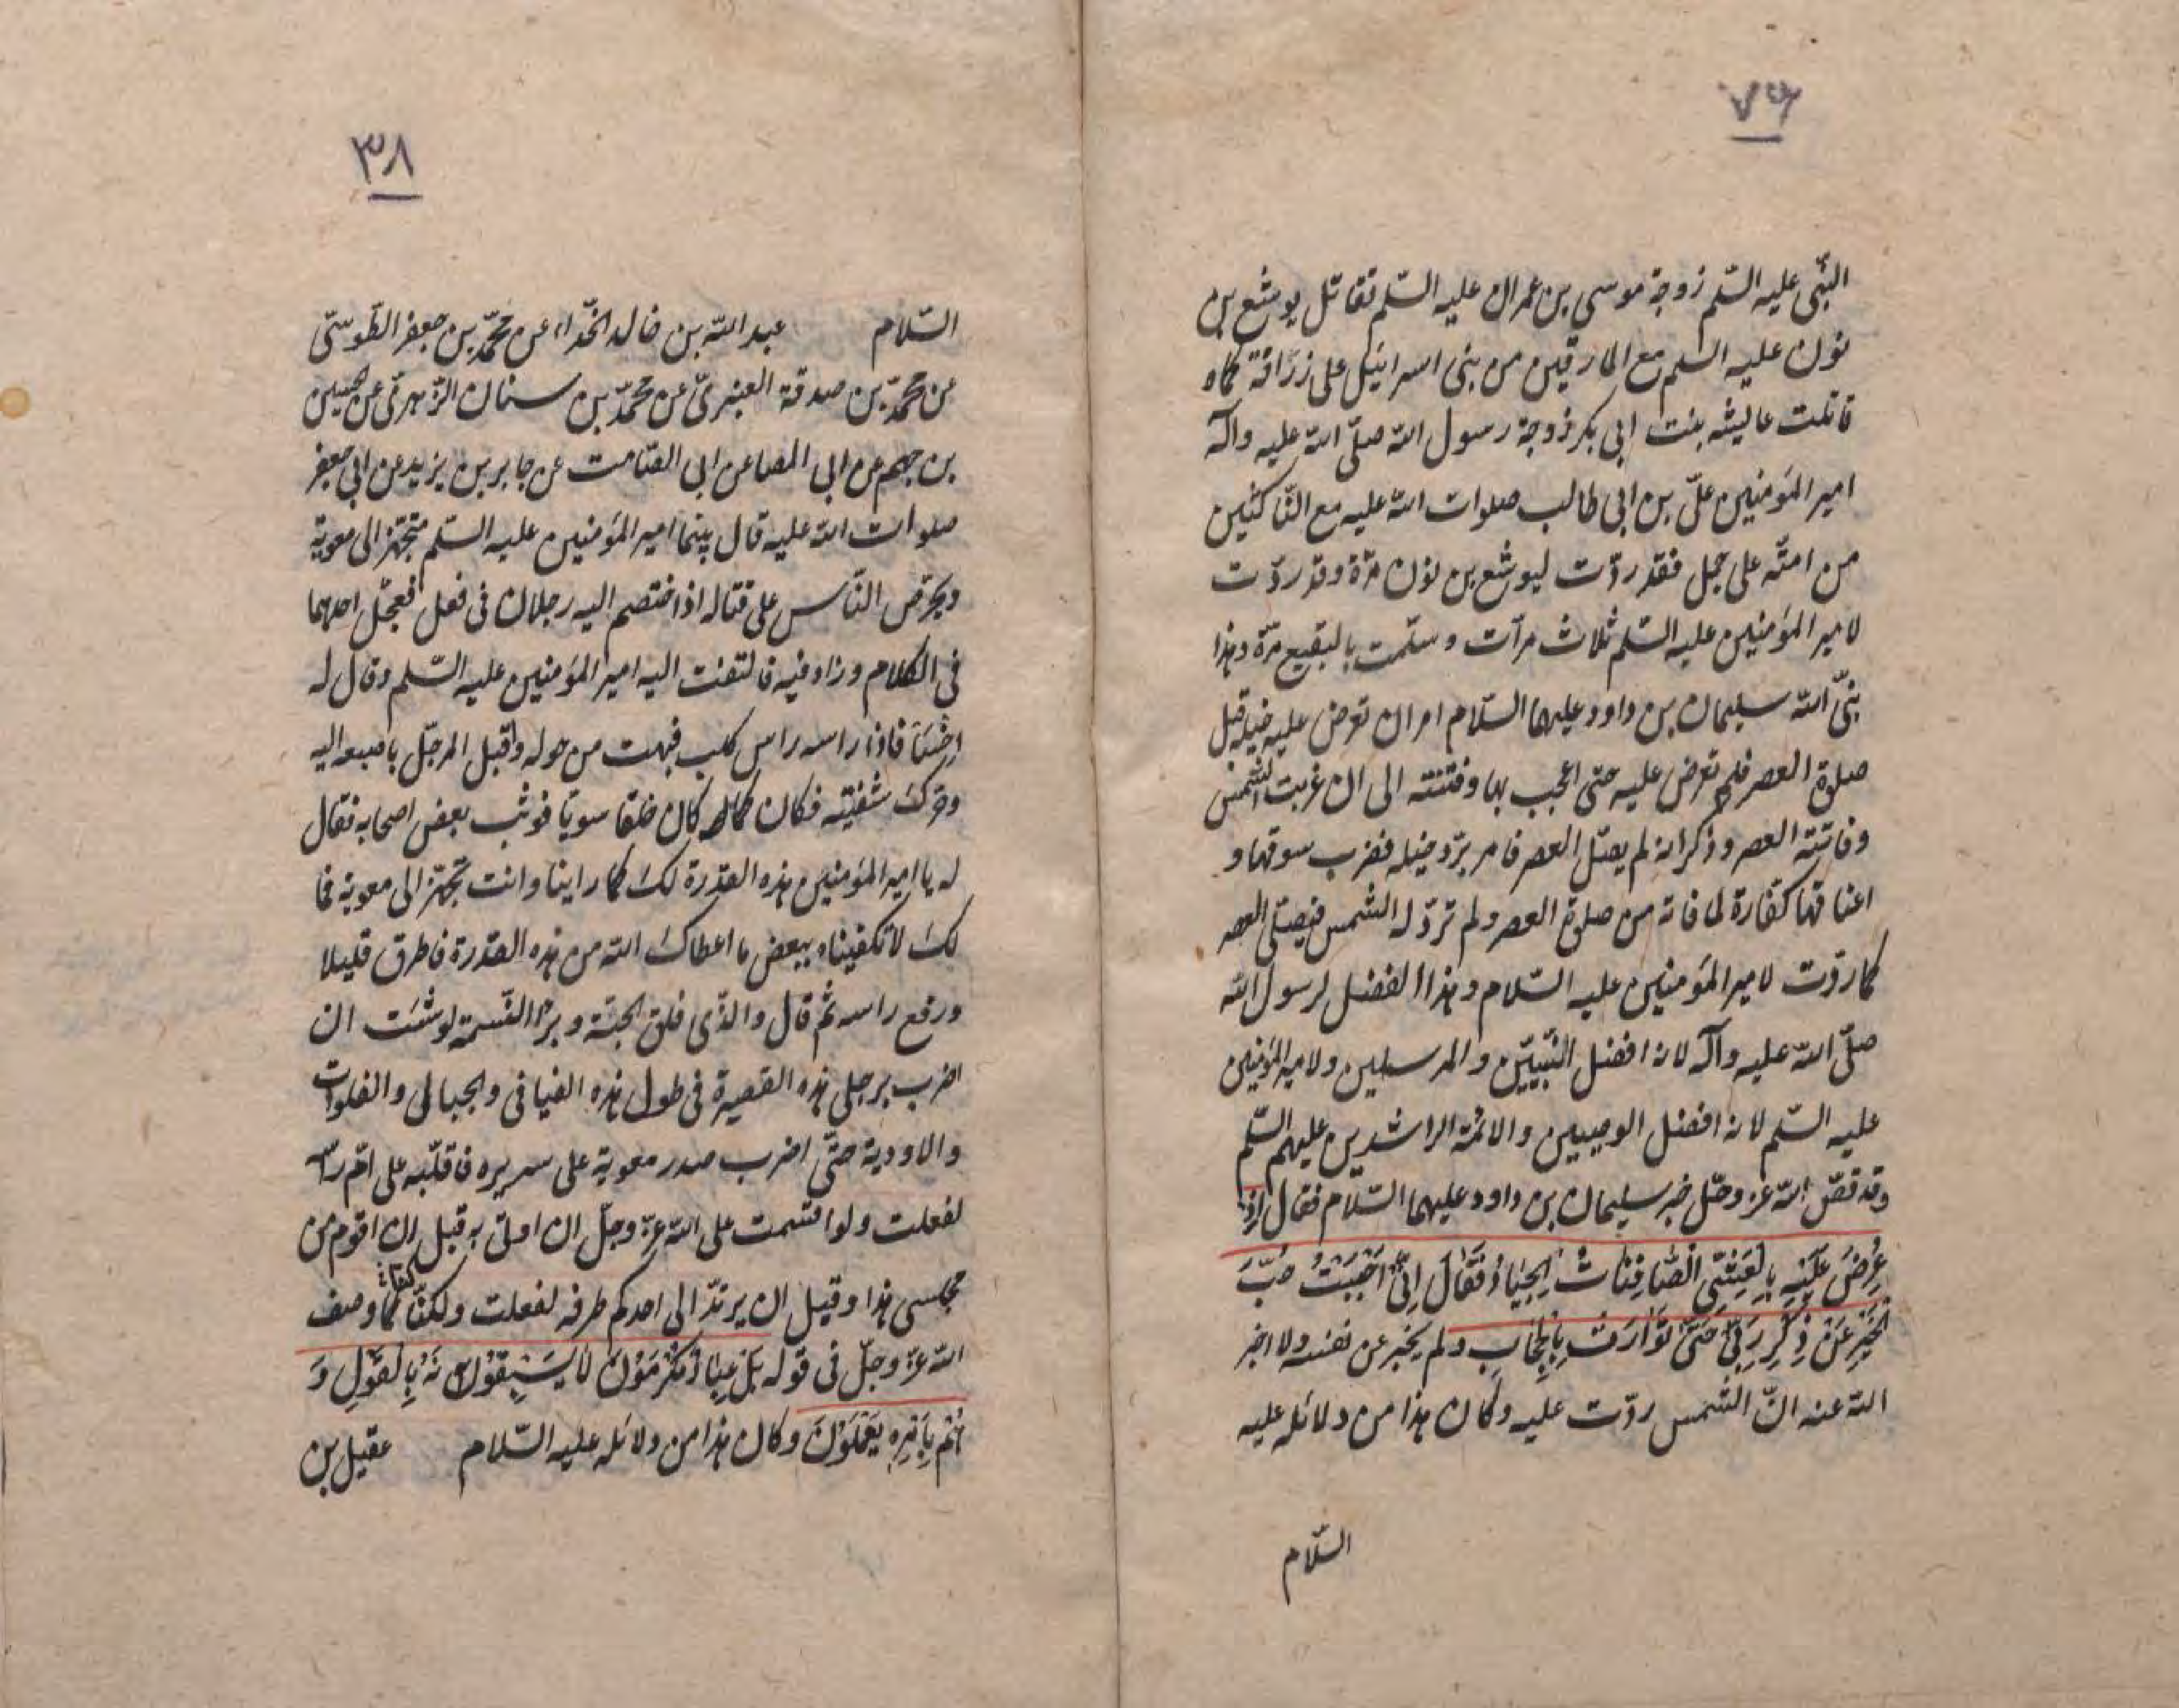 ٧٦
النّبى عليه السّلم زوجة موسى بن عمران عليه السّلم تقاتل يوشع بن
نون عليه السلم مع المارقين من بنى اسرائيل على زرافة كماه
قاتلت عايشه بنت ابى بكر زوجة رسول الله صلّى الله عليه وآله
امير المؤمنين علىّ بن ابى طالب صلوات الله عليه مع النّاكثين
من امته على جمل فقد ردّت ليوشع بن نون مرّة وقد ردّت
لامير المؤمنين عليه السّلم ثلاث مرآت وسلّمت بالبقيع مرّة وهذا
نبىّ الله سليمان بن داود عليهما السّلام امر ان تعرض عليه خيله قبل
صلوة العصر فلم تعرض عليه حتى اعجب بها وفتنته الى ان غربت الشمس
وفاتته العصر وذكر انه لم يصلّ العصر فامر بردّ خيله فضرب سوقها و
اعناقها كفّارة لما فاته من صلوة العصر ولم تردّ له الشمس فيصلّى العصر
كما ردّت لامير المؤمنين عليه السّلام وهذا الفضل لرسول الله
صلّى الله عليه وآله لانه افضل النّبيّين والمرسلين ولامير المؤمنين
عليه السّلم لانه افضل الوصيين والائمّة الراشدين عليهم السّلم
وقد قصّ الله عزّ وجلّ خبر سليمان بن داود عليهما السّلام فقال اِذْ
عُرِضَ عَلَيْهِ بِالْعَشِىِّ الصّافِناتُ الْجِيادُ فَقالَ اِنّى اَحْبَبْتُ حُبَّ
الْخَيْرِ عَنْ ذِكْرِ رَبّى حَتّى تَوارَتْ بِالْحِجابِ ولم يخبر عن نفسه ولا اخبر
الله عنه انّ الشّمس ردّت عليه وكان هذا من دلائله عليه
السّلام
٣٨
السّلام عبد الله بن خالد الحذّاء عن محمّد بن جعفر الطّوسّى
عن محمّد بن صدقة العنبرىّ عن محمّد بن سنان الزّهرىّ عن حسين
بن جهم عن ابى المصا عن ابى الصّامت عن جابر بن يزيد عن ابى جعفر
صلوات الله عليه قال بينما امير المؤمنين عليه السّلم متجهّز الى معوية
ويحرّض النّاس على قتاله اذا ختصم اليه رجلان فى فعل فعجّل احدهما
فى الكلام وزاد فيه فالتفت اليه امير المؤمنين عليه السّلم وقال له
اِخْسَأ فاذا راسه راس كلب فبهت من حوله واقبل الرجّل باصبعه اليه
وحرّك شفتيه فكان كان خلقا سويّا فوثب بعض اصحابه فقال
له يا امير المؤمنين هذه القدرة لك كما راينا وانت تجهّز الى معوية فما
لك لا تكفيناه ببعض ما اعطاك الله من هذه القدرة فاطرق قليلا
ورفع راسه ثم قال والذّى فلق الحبّة وبرأ النّسمة لو شئت ان
اضرب برجلى هذه القصيرة فى طول هذه الفيافى والجبال والفلوات
والاودية حتّى اضرب صدر معوية على سريره فاقلّبه على امّ راسه
لفعلت ولو اقسمت على الله عزّ وجلّ ان اوتى به قبل ان اقوم من
مجلسى هذا وقبل ان يرتدّ الى احدكم طرفه لفعلت ولكنّا كما وصف
الله عزّ وجلّ فى قوله بَلْ عِبادٌ مُكْرَمُونَ لا يَسْبِقُونَهُ بِالْقَوْلِ وَ
هُمْ بِاَمْرِهِ يَعْمَلُونَ وكان هذا من دلائله عليه السّلام عقيل بن